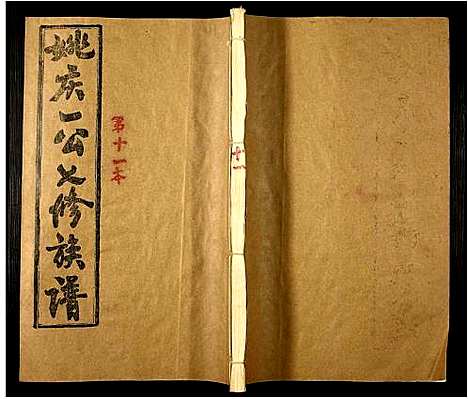 姚庆一公七修族谱
第十一本
十一